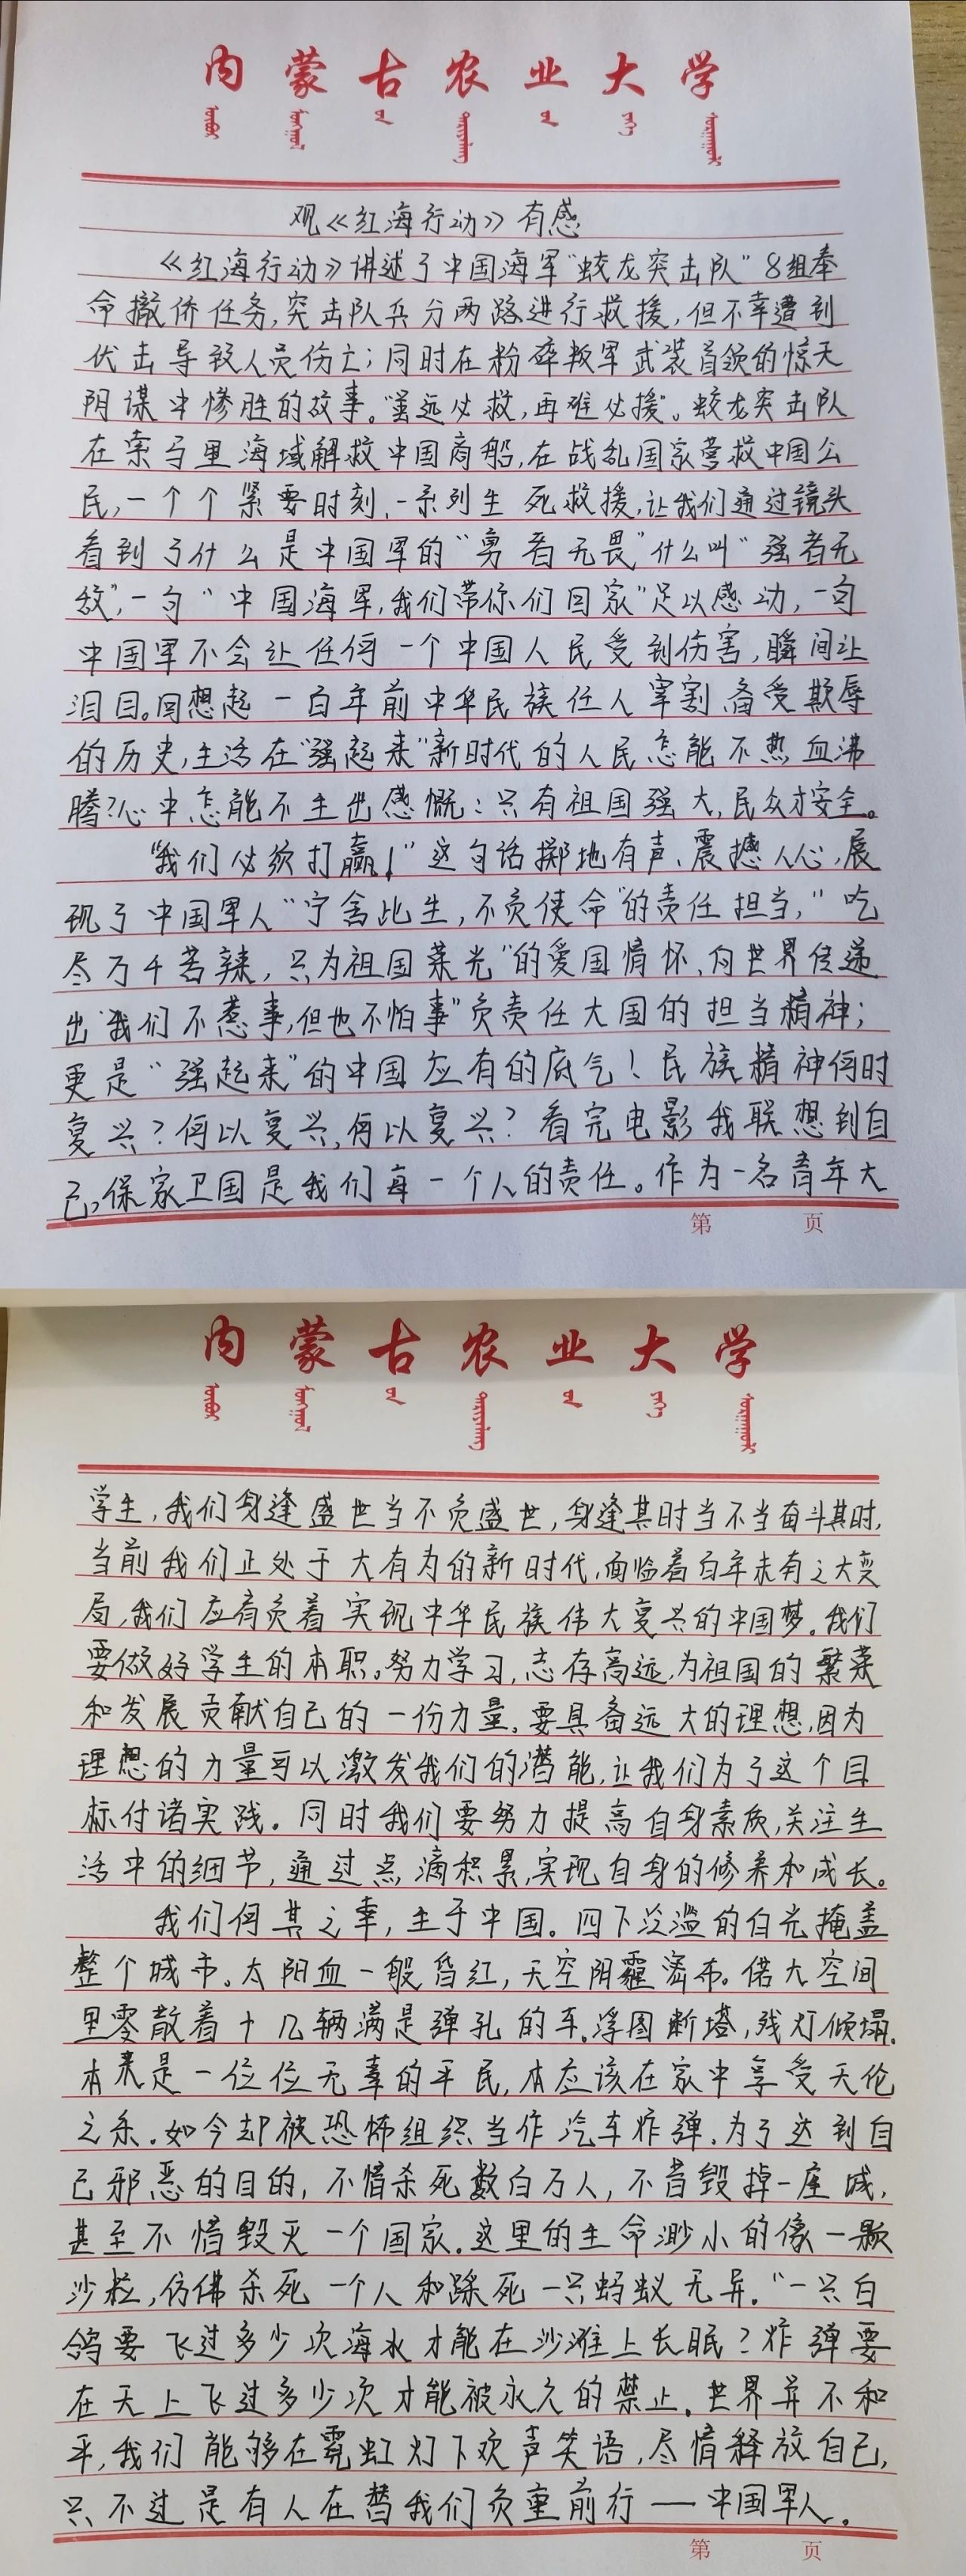 内蒙古农业大学
观《红海行动》有感
《红海行动》讲述了中国海军“蛟龙突击队”8组奉
命撤侨任务,突击队兵分两路进行救援,但不幸遭到
伏击导致人员伤亡;同时在粉碎叛军武装首领的惊天
阴谋中惨胜的故事。“虽远必救,再难必援”。蛟龙突击队
在索马里海域解救中国商船,在战乱国家营救中国公
民,一个个紧要时刻、一系列生死救援,让我们通过镜头
看到了什么是中国军的“勇者无畏”什么叫“强者无
敌”,一句“中国海军,我们带你们回家”足以感动,一句
中国军不会让任何一个中国人民受到伤害,瞬间让
泪目。回想起一百年前中华民族任人宰割备受欺辱
的历史,生活在“强起来”新时代的人民怎能不热血沸
腾?心中怎能不生出感慨:只有祖国强大,民众才安全。
“我们必须打赢!”这句话掷地有声、震撼人心,展
现了中国军人“宁舍此生,不负使命”的责任担当,“吃
尽万千苦辣,只为祖国荣光”的爱国情怀、向世界传递
出“我们不惹事,但也不怕事”负责任大国的担当精神;
更是“强起来”的中国应有的底气!民族精神何时
复兴?何以复兴,何以复兴?看完电影我联想到自
己,保家卫国是我们每一个人的责任。作为一名青年大
第 页
内蒙古农业大学
学生,我们身逢盛世当不负盛世,身逢其时当不当奋斗其时,
当前我们正处于大有为的新时代,面临着百年未有之大变
局,我们应肩负着实现中华民族伟大复兴的中国梦。我们
要做好学生的本职。努力学习,志存高远,为祖国的繁荣
和发展贡献自己的一份力量。要具备远大的理想,因为
理想的力量可以激发我们的潜能,让我们为了这个目
标付诸实践。同时我们要努力提高自身素质,关注生
活中的细节,通过点滴积累,实现自身的修养和成长。
我们何其之幸,生于中国。四下泛滥的白光掩盖
整个城市。太阳血一般昏红,天空阴霾密布。偌大空间
里零散着十几辆满是弹孔的车。浮图断塔,残灯倾塌。
本来是一位位无辜的平民,本应该在家中享受天伦
之乐。如今却被恐怖组织当作汽车炸弹。为了达到自
己邪恶的目的,不惜杀死数百万人,不昔毁掉一座城,
甚至不惜毁灭一个国家。这里的生命渺小的像一颗
沙粒,仿佛杀死一个人和踩死一只蚂蚁无异。“一只白
鸽要飞过多少次海水才能在沙滩上长眠?炸弹要
在天上飞过多少次才能被永久的禁止。世界并不和
平,我们能够在霓虹灯下欢声笑语,尽情释放自己,
只不过是有人在替我们负重前行——中国军人。
第 页